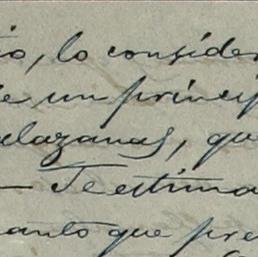 io, lo consider
e un princip
elazanas, qu
— Te estima
uanto que pre